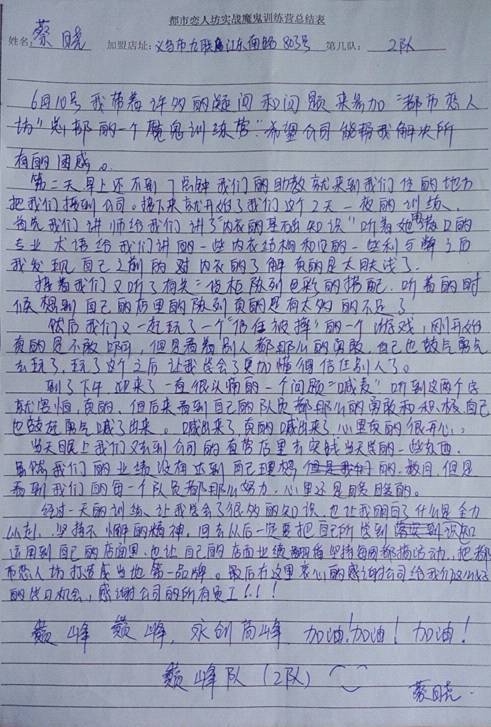 都市恋人坊实战魔鬼训练营总结表
姓名：蔡晓 加盟店址：义乌市 803号 第几队：2队
6月10号我带着许多的疑问和问题来参加"都市恋人
坊"总部的一个魔鬼训练营"希望公司能帮我解决所
有的困惑。
第二天早上还不到7点钟我们的助教就来到我们住的地方
把我们接到公司。接下来就开始了我们这个2天一夜的训练、
首先我们讲师给我们讲了"内衣的基础知识"听着她用口的
专业术语给我们讲的一些内衣结构和贝的一些利与弊之后
我发现自己之前的对内衣的了解真的是太肤浅了.
接着我们又听了有关"货柜陈列色彩的搭配.听着的时
候想到自己的店里的陈列真的是有太多的不足了
然后我们又一起玩了一个"信任被摔"的一个游戏,刚开始
真的是不敢 ,但是看着别人都那么的勇敢,自己也鼓片勇气
去玩了,玩了这个之后让我学会了更加懂得信任别人了。
到了下午 迎来了一直很头痛的一个问题"喊麦"听到这两个字
就害怕,真的,但后来看到自己的队员都那么的勇敢和积极自己
也鼓足勇气喊了出来。喊出来了真的喊出来了心里真的很开心,
当天晚上我们又去到公司的直营店里去实践当天学的一些东西.
虽然我们的业绩没有达到自己理想 的.数目,但是
看到我们的每一个队员都那么努力.心里还是暖暖的。
经过一天的训练、让我学会了很多的知识、也让我明白了什么是全力
以赴、坚持不懈的精神,回去以后一定要把自己所学到 识知
运用到自己的店面里.也让自己的店面业绩 坚持每周都搞活动,把都
市恋人坊打造成当地第一品牌。最后在这里衷心的感谢公司给我们这么好
的学习机会,感谢公司的所有员工!!!
巅峰 巅峰,永创高峰 加油!加油!加油!
巅峰队(2队)
蔡晓.